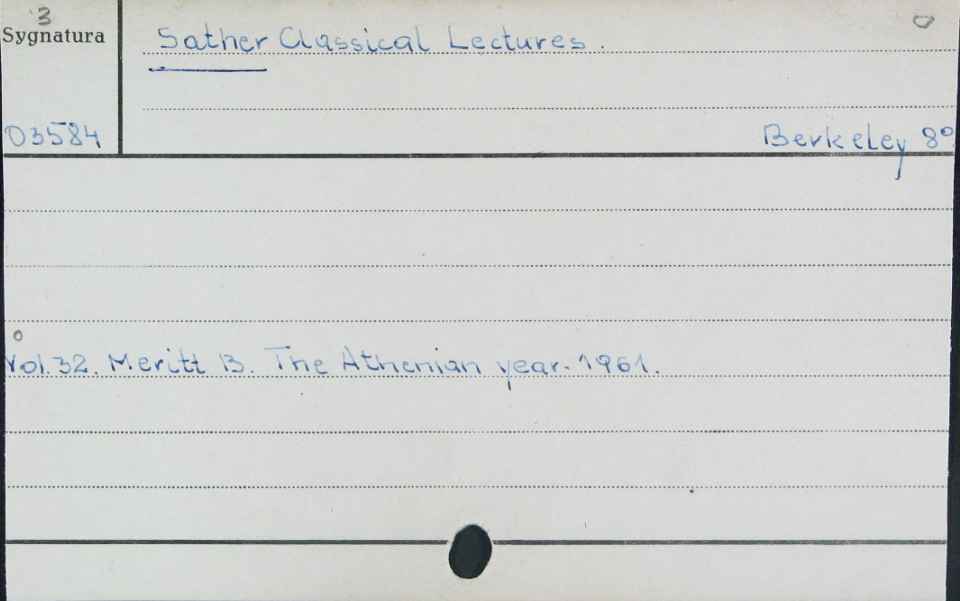 3
Sygnatura
Sather Classical Lectures.
03584
Berkeley 8°
Vol. 32. Meritt B. The Athenian year. 1961.